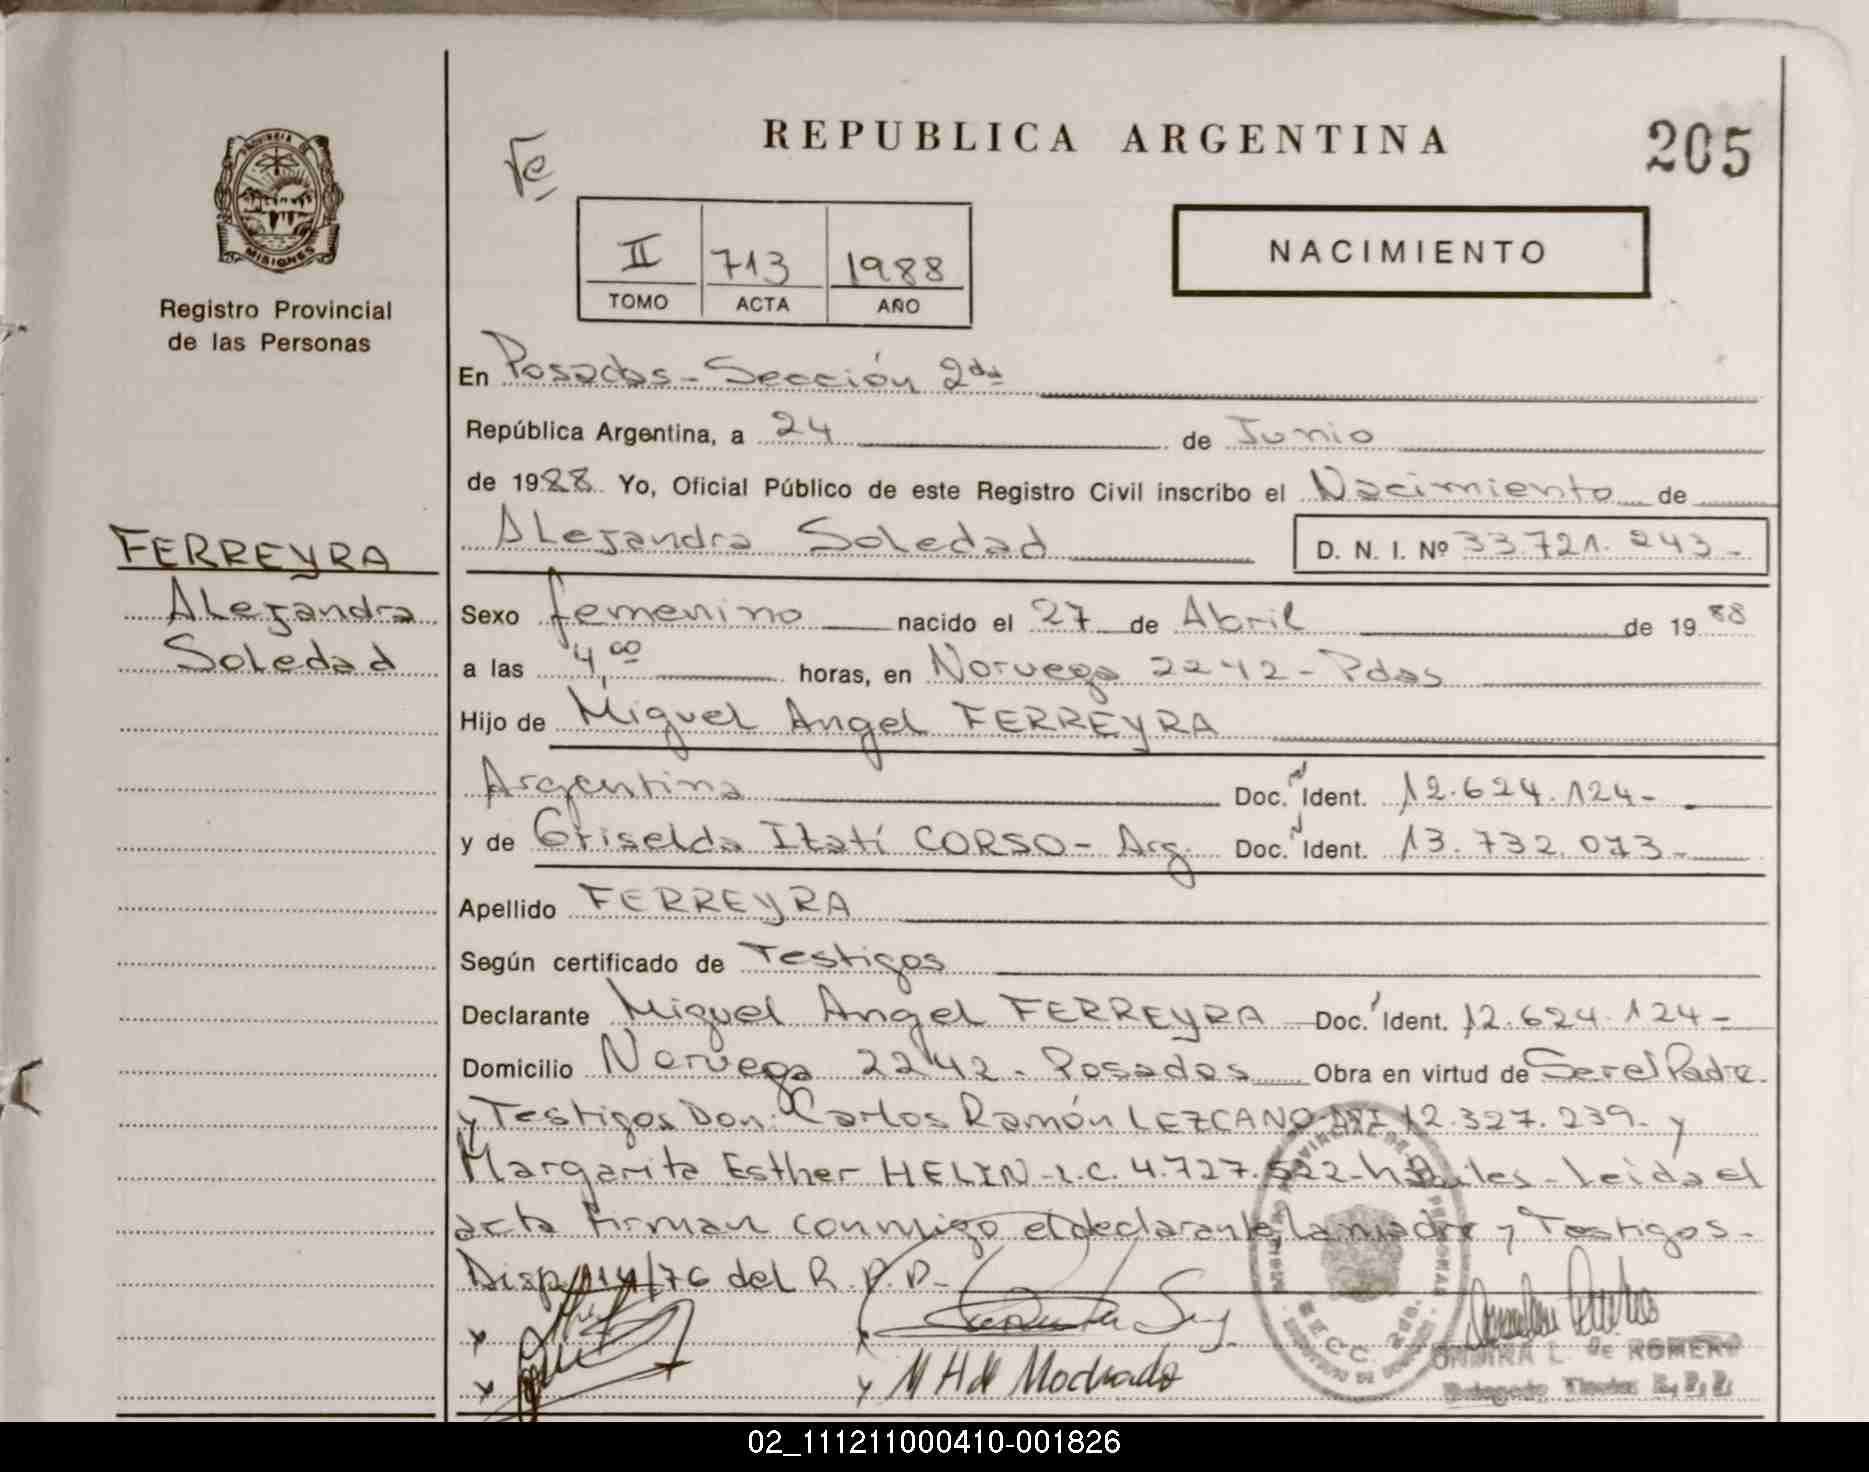 REPUBLICA ARGENTINA
205
PROVINCIA DE
MISIONES
Registro Provincial
de las Personas
II 713 1988
TOMO ACTA AÑO
NACIMIENTO
En Posadas - Sección 2da
República Argentina, a 24 de Junio
de 1988 Yo, Oficial Público de este Registro Civil inscribo el Nacimiento de
FERREYRA
Alejandra
Soledad
Alejandra Soledad D. N. I. Nº 33.721.243-
Sexo femenino nacido el 27 de Abril de 1988
a las 4,00 horas, en Noruega 2242 - Pdas
Hijo de Miguel Angel FERREYRA
Argentina Doc. Ident. 12.624.124-
y de Griselda Itatí CORSO - Arg. Doc. Ident. 13.732.073-
Apellido FERREYRA
Según certificado de Testigos
Declarante Miguel Angel FERREYRA Doc. Ident. 12.624.124-
Domicilio Noruega 2242 - Posadas Obra en virtud de Ser el Padre
y Testigos Don: Carlos Ramón LEZCANO DNI 12.327.239- y
Margarita Esther HELIN - L.C. 4.727.522 - hábiles - Leida el
acta firman conmigo el declarante la madre y Testigos -
Disp. /76 del R.P.P.-
M H de Machado
L. DE ROMERO
02_111211000410-001826